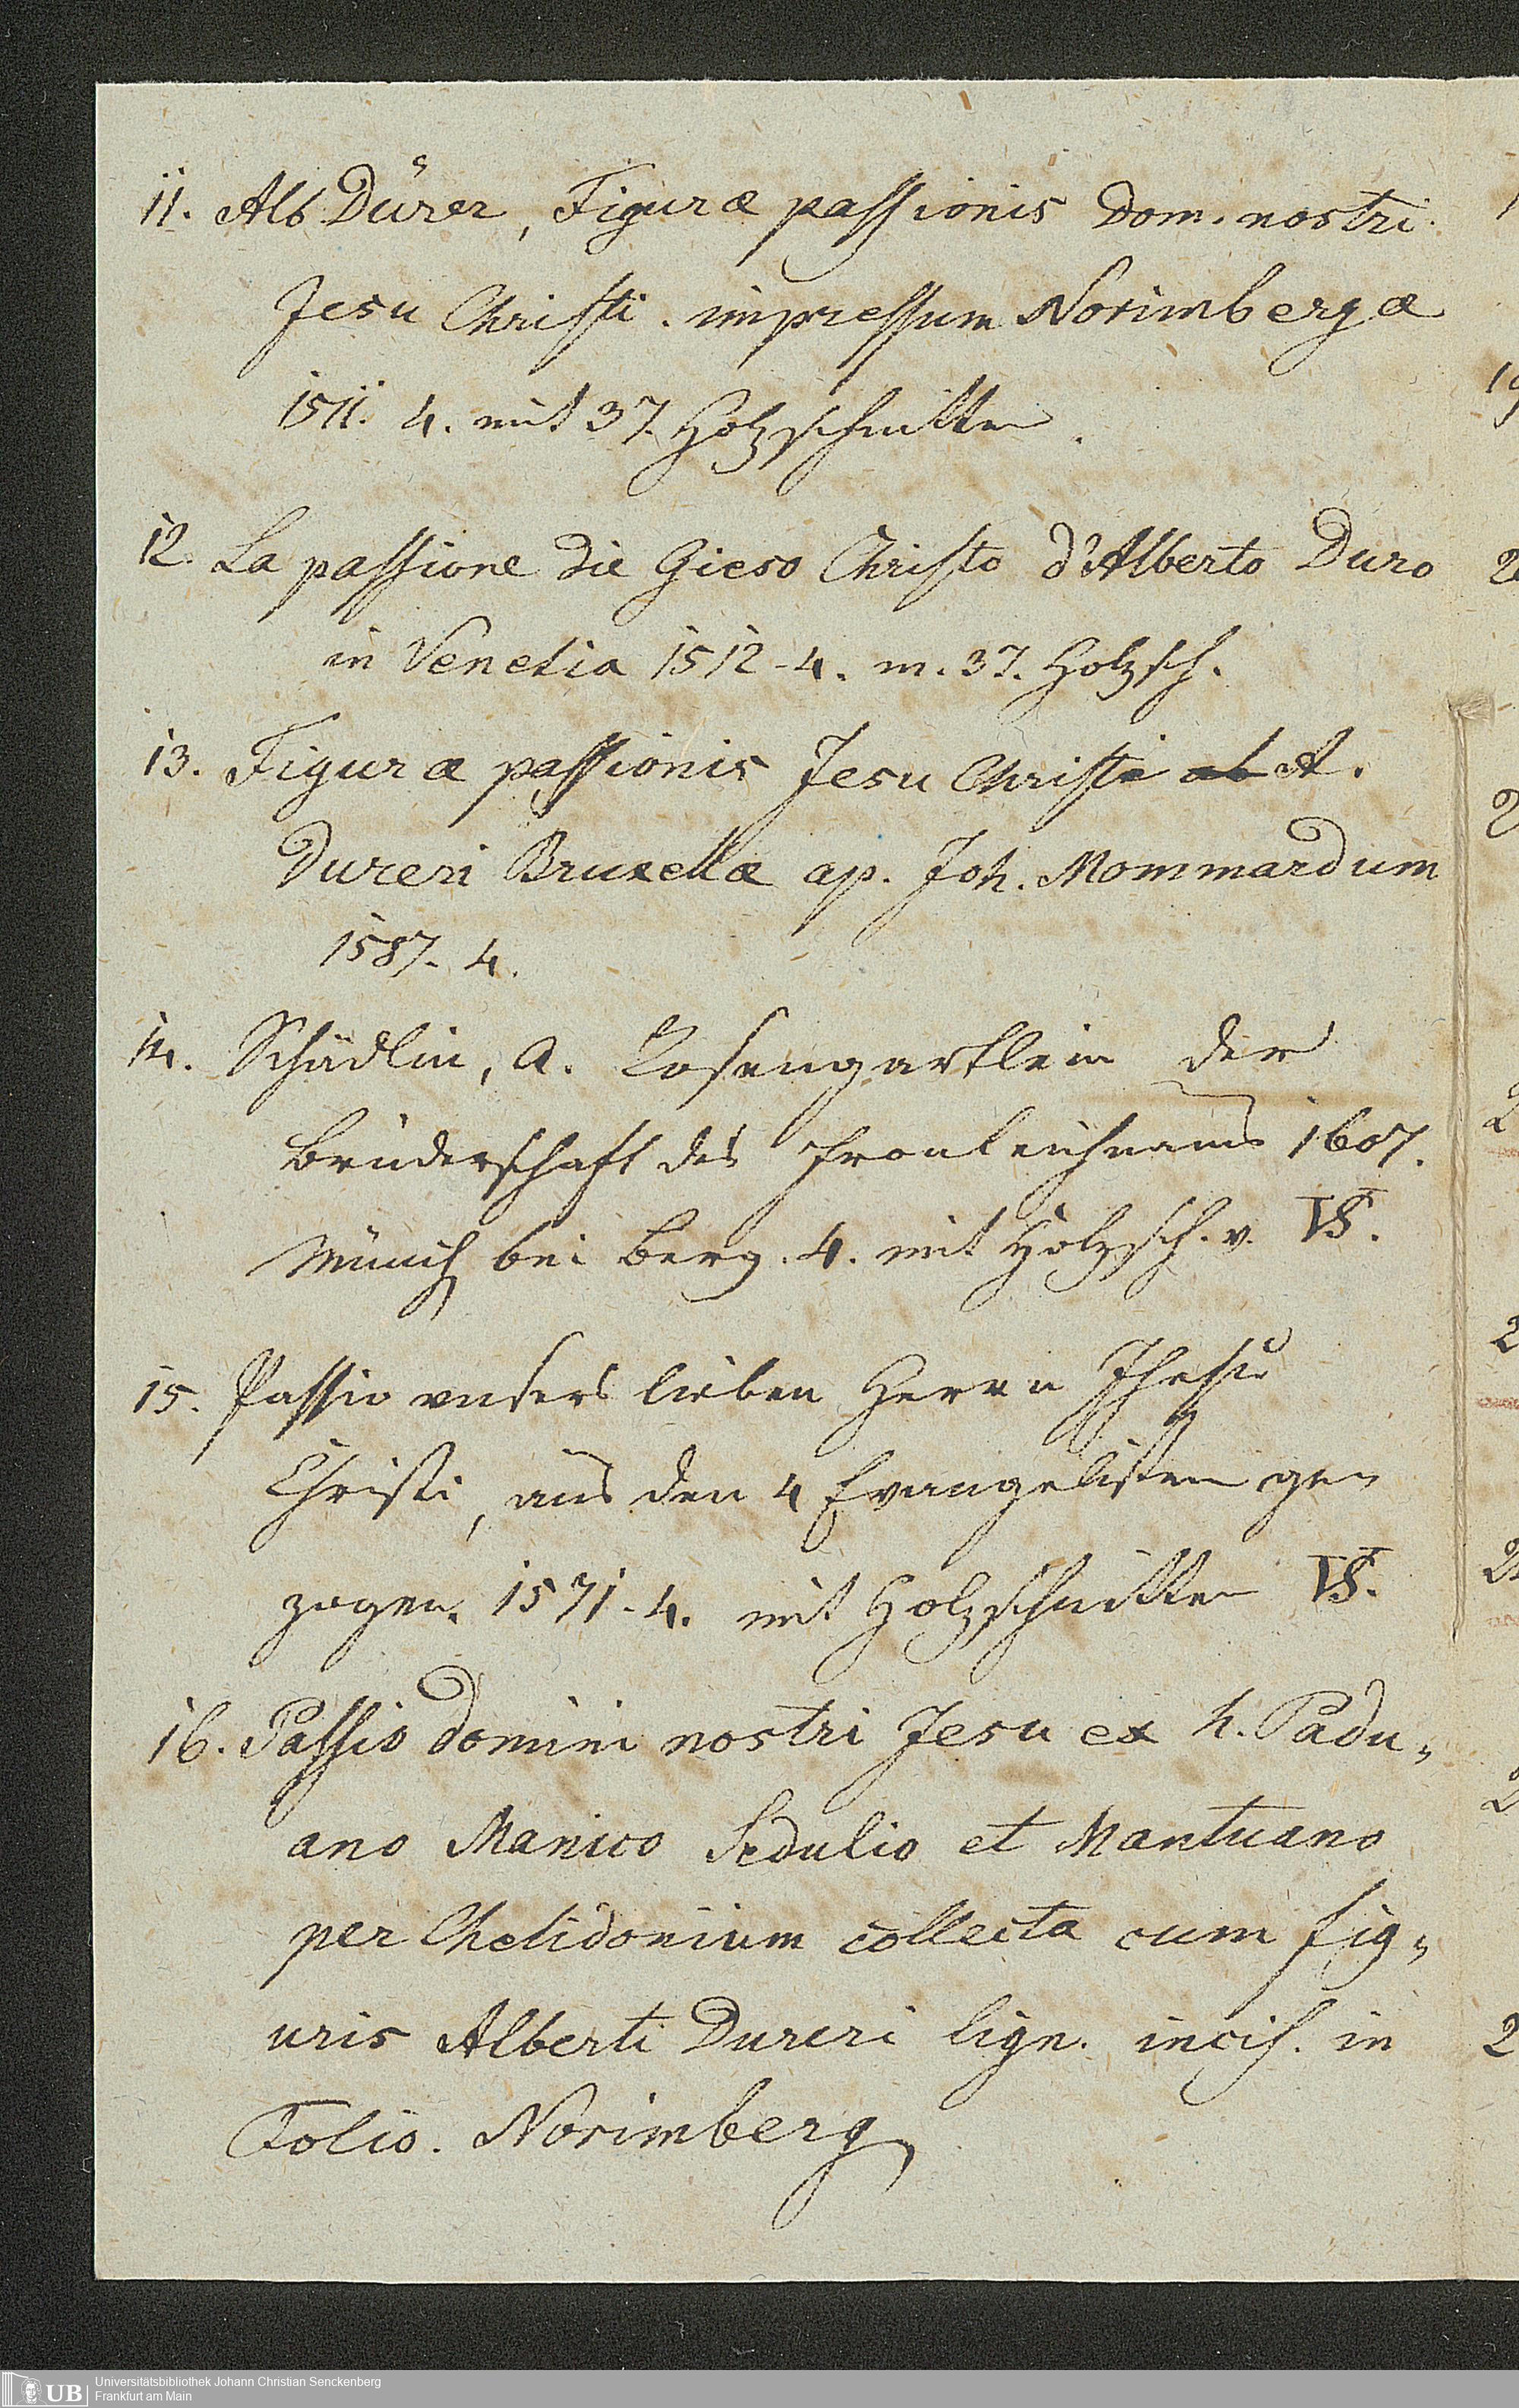 11. Alb Dürer, Figuræ passionis Dom. nostri
Jesu Christi. impressum Norimbergæ
1511. 4. mit 37. Holzschnitten.
12. La passione die Gieso Christo d'Alberto Duro
in Venetia 1512-4. m. 37. Holzsch.
13. Figuræ passionis Jesu Christi ab A.
Dureri Bruxellæ ap. Joh. Mommardum
1587- 4.
14. Schädlin, A. Rosengartlein der
Bruderschaft des Fronleichnams 1607.
Münich bei Berg. 4. mit Holzsch. v. VS.
15. Passio unsers lieben Herrn Jhesu
Christi, aus den 4 Evangelisten ge-
zogen. 1571-4. mit Holzschnitten VS.
16. Passio domini nostri Jesu ex h. Padu-
ano Manico Sedulio et Mantuano
per Chelidonium collecta cum fig-
uris Alberti Dureri lign. incis. in
Folio. Norimberg
Universitätsbibliothek Johann Christian Senckenberg
Frankfurt am Main
UB